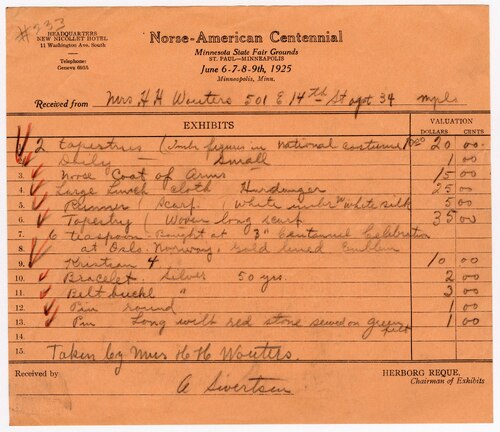 #233
HEADQUARTERS
NEW NICOLLET HOTEL
11 Washington Ave. South
Telephone:
Geneva 6805
Norse-American Centennial
Minnesota State Fair Grounds
ST. PAUL—MINNEAPOLIS
June 6-7-8-9th, 1925
Minneapolis, Minn.
Received from Mrs H H Wouters 501 E 14th St apt 34 mpls
EXHIBITS VALUATION
DOLLARS CENTS
2 tapestries (Embr figures in national costume) 20 00
2. Doily Small 1 00
3. Norse Coat of Arms 15 00
4. Large Lunch cloth Hardanger 25 00
5. Runner / Scarf (White embr white silk 5 00
6. Tapestry (Woven long scarf 35 00
7. 6 teaspoons Bought at 3" Centennial Celebration
8. at Oslo. Norway. Gold lined Emblem
9. Kristian 4 10 00
10. Bracelet Silver 50 yrs. 2 00
11. Belt buckl " 3 00
12. Pin round 1 00
13. Pin Long with red stone sewed on green felt 1 00
14.
15. Taken by Mrs H H Wouters.
Received by A Sivertsen
HERBORG REQUE,
Chairman of Exhibits